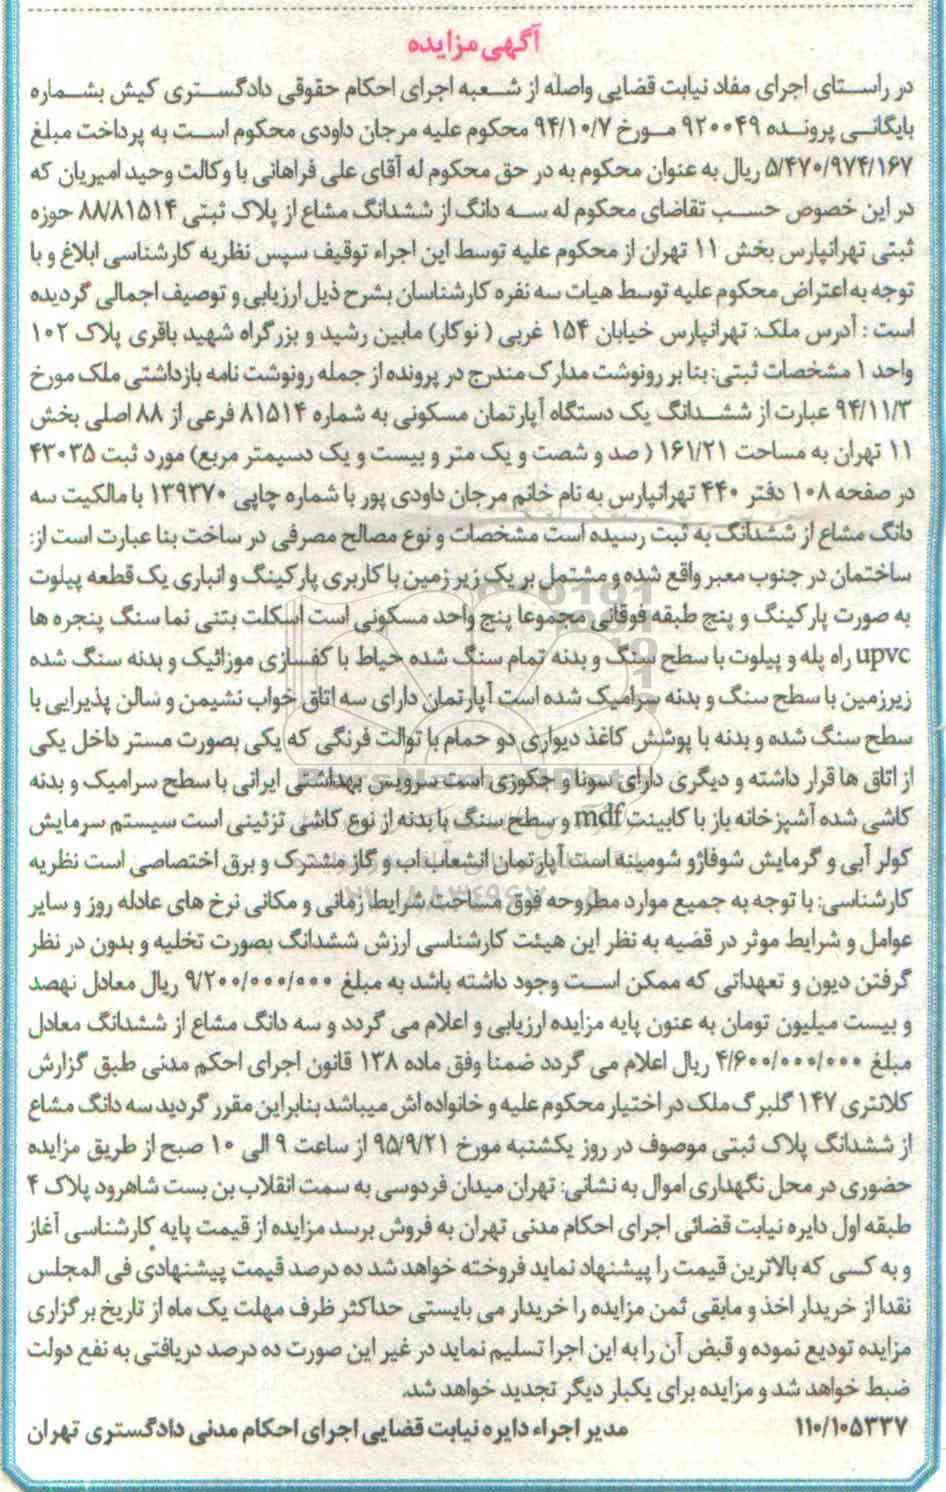 آگهی مزایده
در راستای اجرای مفاد نیابت قضایی واصله از شعبه اجرای احکام حقوقی دادگستری کیش بشماره
بایگانی پرونده ۹۲۰۰۴۹ مورخ ۹۴/۱۰/۷ محکوم علیه مرجان داودی محکوم است به پرداخت مبلغ
۵/۴۷۰/۹۷۴/۱۶۷ ریال به عنوان محکوم به در حق محکوم له آقای علی فراهانی با وکالت وحید امیریان که
در این خصوص حسب تقاضای محکوم له سه دانگ از ششدانگ مشاع از پلاک ثبتی ۸۸/۸۱۵۱۴ حوزه
ثبتی تهرانپارس بخش ۱۱ تهران از محکوم علیه توسط این اجراء توقیف سپس نظریه کارشناسی ابلاغ و با
توجه به اعتراض محکوم علیه توسط هیات سه نفره کارشناسان بشرح ذیل ارزیابی و توصیف اجمالی گردیده
است : آدرس ملک: تهرانپارس خیابان ۱۵۴ غربی ( نوکار) مابین رشید و بزرگراه شهید باقری پلاک ۱۰۲
واحد ۱ مشخصات ثبتی: بنا بر رونوشت مدارک مندرج در پرونده از جمله رونوشت نامه بازداشتی ملک مورخ
۹۴/۱۱/۳ عبارت از ششدانگ یک دستگاه آپارتمان مسکونی به شماره ۸۱۵۱۴ فرعی از ۸۸ اصلی بخش
۱۱ تهران به مساحت ۱۶۱/۲۱ ( صد و شصت و یک متر و بیست و یک دسیمتر مربع) مورد ثبت ۴۳۰۳۵
در صفحه ۱۰۸ دفتر ۴۴۰ تهرانپارس به نام خانم مرجان داودی پور با شماره چاپی ۱۳۹۲۷۰ با مالکیت سه
دانگ مشاع از ششدانگ به ثبت رسیده است مشخصات و نوع مصالح مصرفی در ساخت بنا عبارت است از:
ساختمان در جنوب معبر واقع شده و مشتمل بر یک زیرزمین با کاربری پارکینگ و انباری یک قطعه پیلوت
به صورت پارکینگ و پنج طبقه فوقانی مجموعا پنج واحد مسکونی است اسکلت بتنی نما سنگ پنجره ها
upvc راه پله و پیلوت با سطح سنگ و بدنه تمام سنگ شده حیاط با کفسازی موزائیک و بدنه سنگ شده
زیرزمین با سطح سنگ و بدنه سرامیک شده است آپارتمان دارای سه اتاق خواب نشیمن و سالن پذیرایی با
سطح سنگ شده و بدنه با پوشش کاغذ دیواری دو حمام با توالت فرنگی که یکی بصورت مستر داخل یکی
از اتاق ها قرار داشته و دیگری دارای سونا و جکوزی است سرویس بهداشتی ایرانی با سطح سرامیک و بدنه
کاشی شده آشپزخانه باز با کابینت mdf و سطح سنگ با بدنه از نوع کاشی تزئینی است سیستم سرمایش
کولر آبی و گرمایش شوفاژو شومینه است آپارتمان انشعاب اب و گاز مشترک و برق اختصاصی است نظریه
کارشناسی: با توجه به جمیع موارد مطروحه فوق مساحت شرایط زمانی و مکانی نرخ های عادله روز و سایر
عوامل و شرایط موثر در قضیه به نظر این هیئت کارشناسی ارزش ششدانگ بصورت تخلیه و بدون در نظر
گرفتن دیون و تعهداتی که ممکن است وجود داشته باشد به مبلغ ۹/۲۰۰/۰۰۰/۰۰۰ ریال معادل نهصد
و بیست میلیون تومان به عنون پایه مزایده ارزیابی و اعلام می گردد و سه دانگ مشاع از ششدانگ معادل
مبلغ ۴/۶۰۰/۰۰۰/۰۰۰ ریال اعلام می گردد ضمنا وفق ماده ۱۳۸ قانون اجرای احکم مدنی طبق گزارش
کلانتری ۱۴۷ گلبرگ ملک در اختیار محکوم علیه و خانواده اش میباشد بنابراین مقرر گردید سه دانگ مشاع
از ششدانگ پلاک ثبتی موصوف در روز یکشنبه مورخ ۹۵/۹/۲۱ از ساعت ۹ الی ۱۰ صبح از طریق مزایده
حضوری در محل نگهداری اموال به نشانی: تهران میدان فردوسی به سمت انقلاب بن بست شاهرود پلاک ۴
طبقه اول دایره نیابت قضائی اجرای احکام مدنی تهران به فروش برسد مزایده از قیمت پایه کارشناسی آغاز
و به کسی که بالاترین قیمت را پیشنهاد نماید فروخته خواهد شد ده درصد قیمت پیشنهادی فی المجلس
نقدا از خریدار اخذ و مابقی ثمن مزایده را خریدار می بایستی حداکثر ظرف مهلت یک ماه از تاریخ برگزاری
مزایده تودیع نموده و قبض آن را به این اجرا تسلیم نماید در غیر این صورت ده درصد دریافتی به نفع دولت
ضبط خواهد شد و مزایده برای یکبار دیگر تجدید خواهد شد.
۱۱۰/۱۰۵۳۳۷ مدیر اجراء دایره نیابت قضایی اجرای احکام مدنی دادگستری تهران